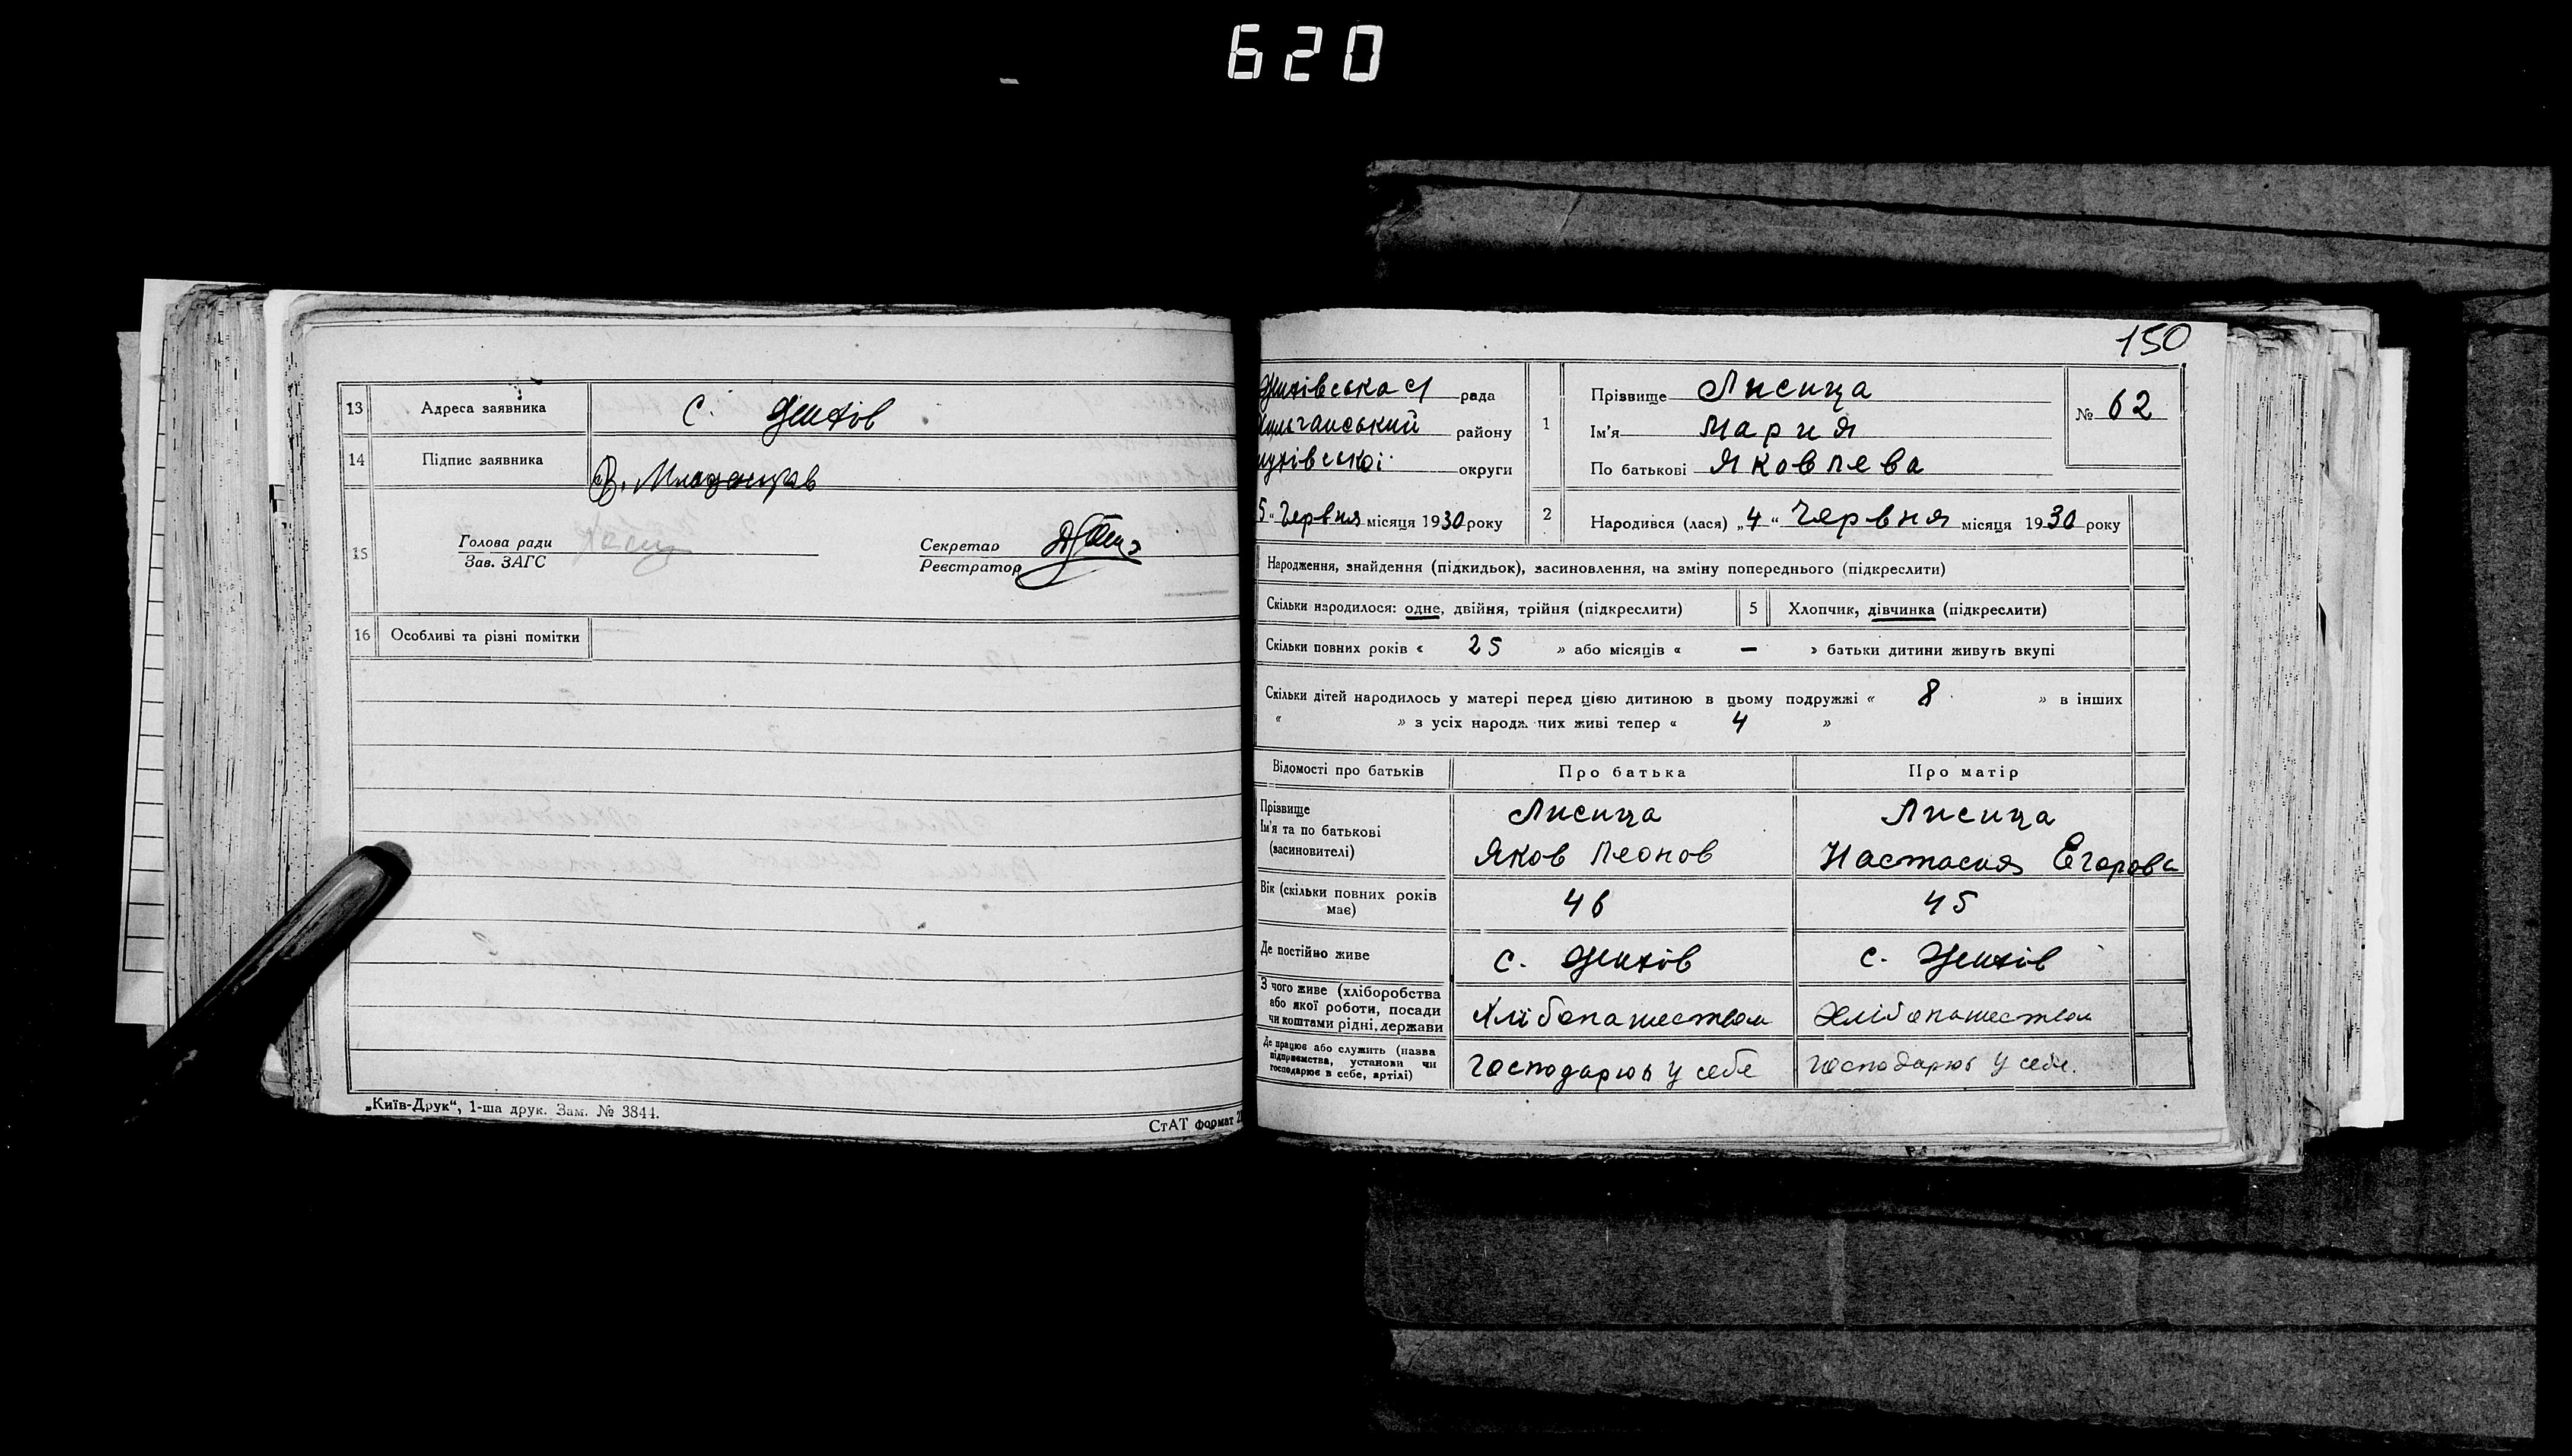 620
13 Адреса заявника с.
14 Підпис заявника
15 Голова ради
Зав. ЗАГС
Секретар
Реєстратор
16 Особливі та різні помітки
„Київ-Друк“, 1-ша друк. Зам. № 3844.
СтАТ формат
150
рада
району
округи
5 “ Червня місяця 1930 року
1 Прізвище Лисица
Ім'я Мария
По батькові Яковлева
№ 62
2 Народився (лася) „4“ Червня місяця 1930 року
Народження, знайдення (підкидьок), засиновлення, на зміну попереднього (підкреслити)
Скільки народилося: одне, двійня, трійня (підкреслити) 5 Хлопчик, дівчинка (підкреслити)
Скільки повних років « 25 » або місяців « — » батьки дитини живуть вкупі
Скільки дітей народилось у матері перед цією дитиною в цьому подружжі « 8 » в інших
« » з усіх народж них живі тепер « 4 »
Відомості про батьків Про батька Про матір
Прізвище Лисица Лисица
Ім'я та по батькові Яков Леонов Настасия Егорова
(засиновителі)
Вік (скільки повних років 46 45
має)
Де постійно живе с. с.
З чого живе (хліборобства
або якої роботи, посади Хлібопашеством Хлібопашеством
чи коштами рідні, держави
Де працює або служить (назва
підприємства, установи чи господарює у себе господарює у себе.
господарює в себе, артілі)